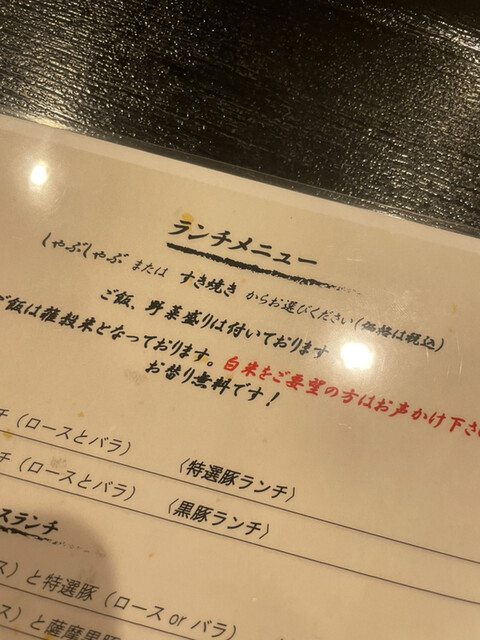 ランチメニュー
しゃぶしゃぶ または すき焼き からお選びください(価格は税込)
ご飯、野菜盛りは付いております
ご飯は雑穀米となっております。白米をご要望の方はお声かけ下さい
お替り無料です！
チ（ロースとバラ） 〈特選豚ランチ〉
チ（ロースとバラ） 〈黒豚ランチ〉
スランチ
ス）と特選豚（ロース or バラ）
ス）と薩摩黒豚